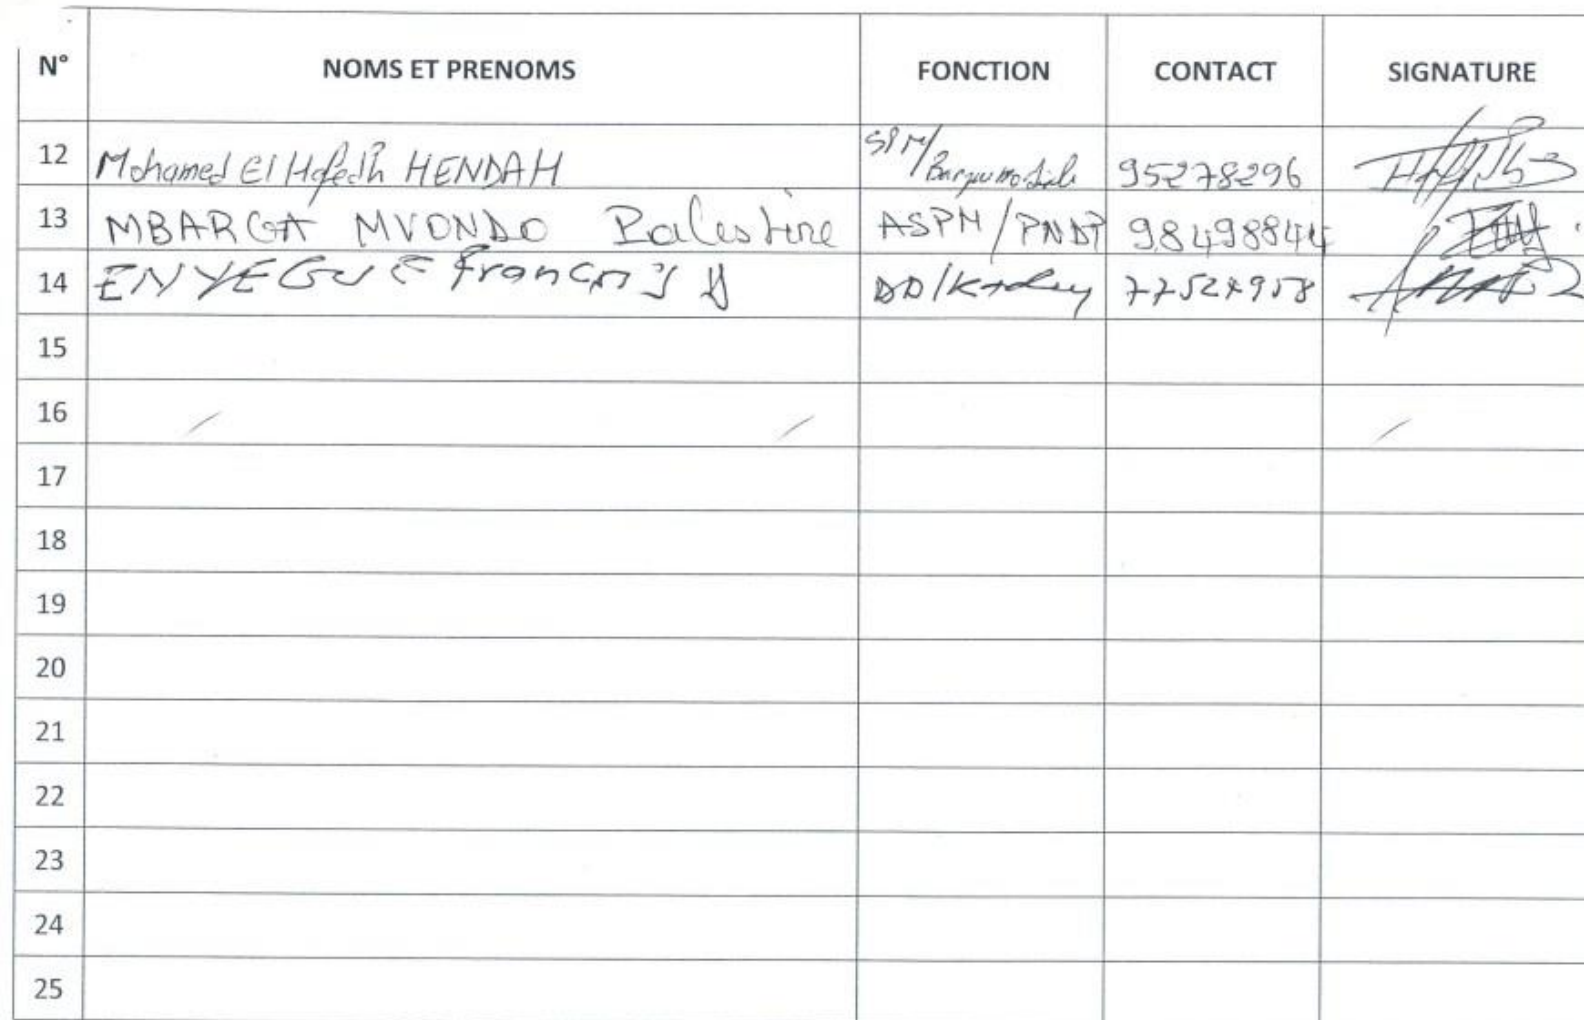 N° NOMS ET PRENOMS FONCTION CONTACT SIGNATURE
12 Mohamed El Hafedh HENDAH SPM/ 95278296
13 MBARGA MVONDO Palestine ASPM/PNDP 98498844
14 ENYEGUE Francis DD/
15
16
17
18
19
20
21
22
23
24
25